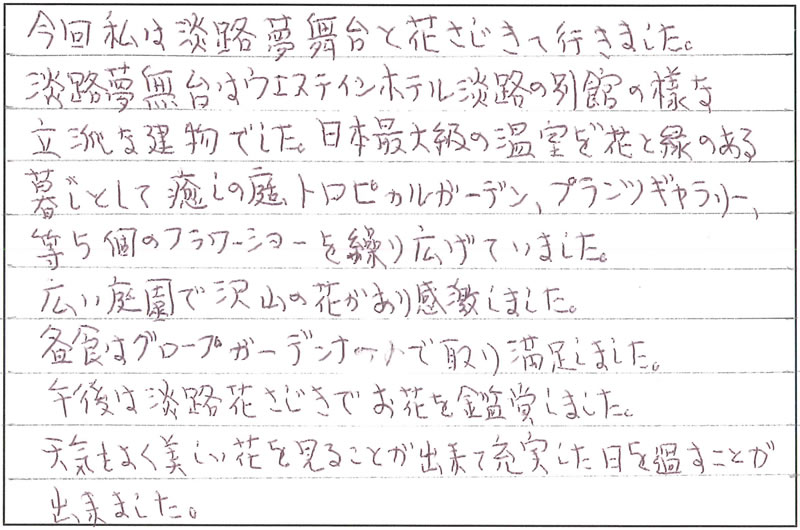 今回私は淡路夢舞台と花さじきて行きました。
淡路夢舞台はウエスティンホテル淡路の別館の様な
立派な建物でした。日本最大級の温室で花と緑のある
暮しとして癒しの庭、トロピカルガーデン、プランツギャラリー、
等5個のフラワーショーを繰り広げていました。
広い庭園で沢山の花があり感激しました。
昼食はグローブガーデンで取り満足しました。
午後は淡路花さじきでお花を鑑賞しました。
天気もよく美しい花を見ることが出来て充実した日を過すことが
出来ました。